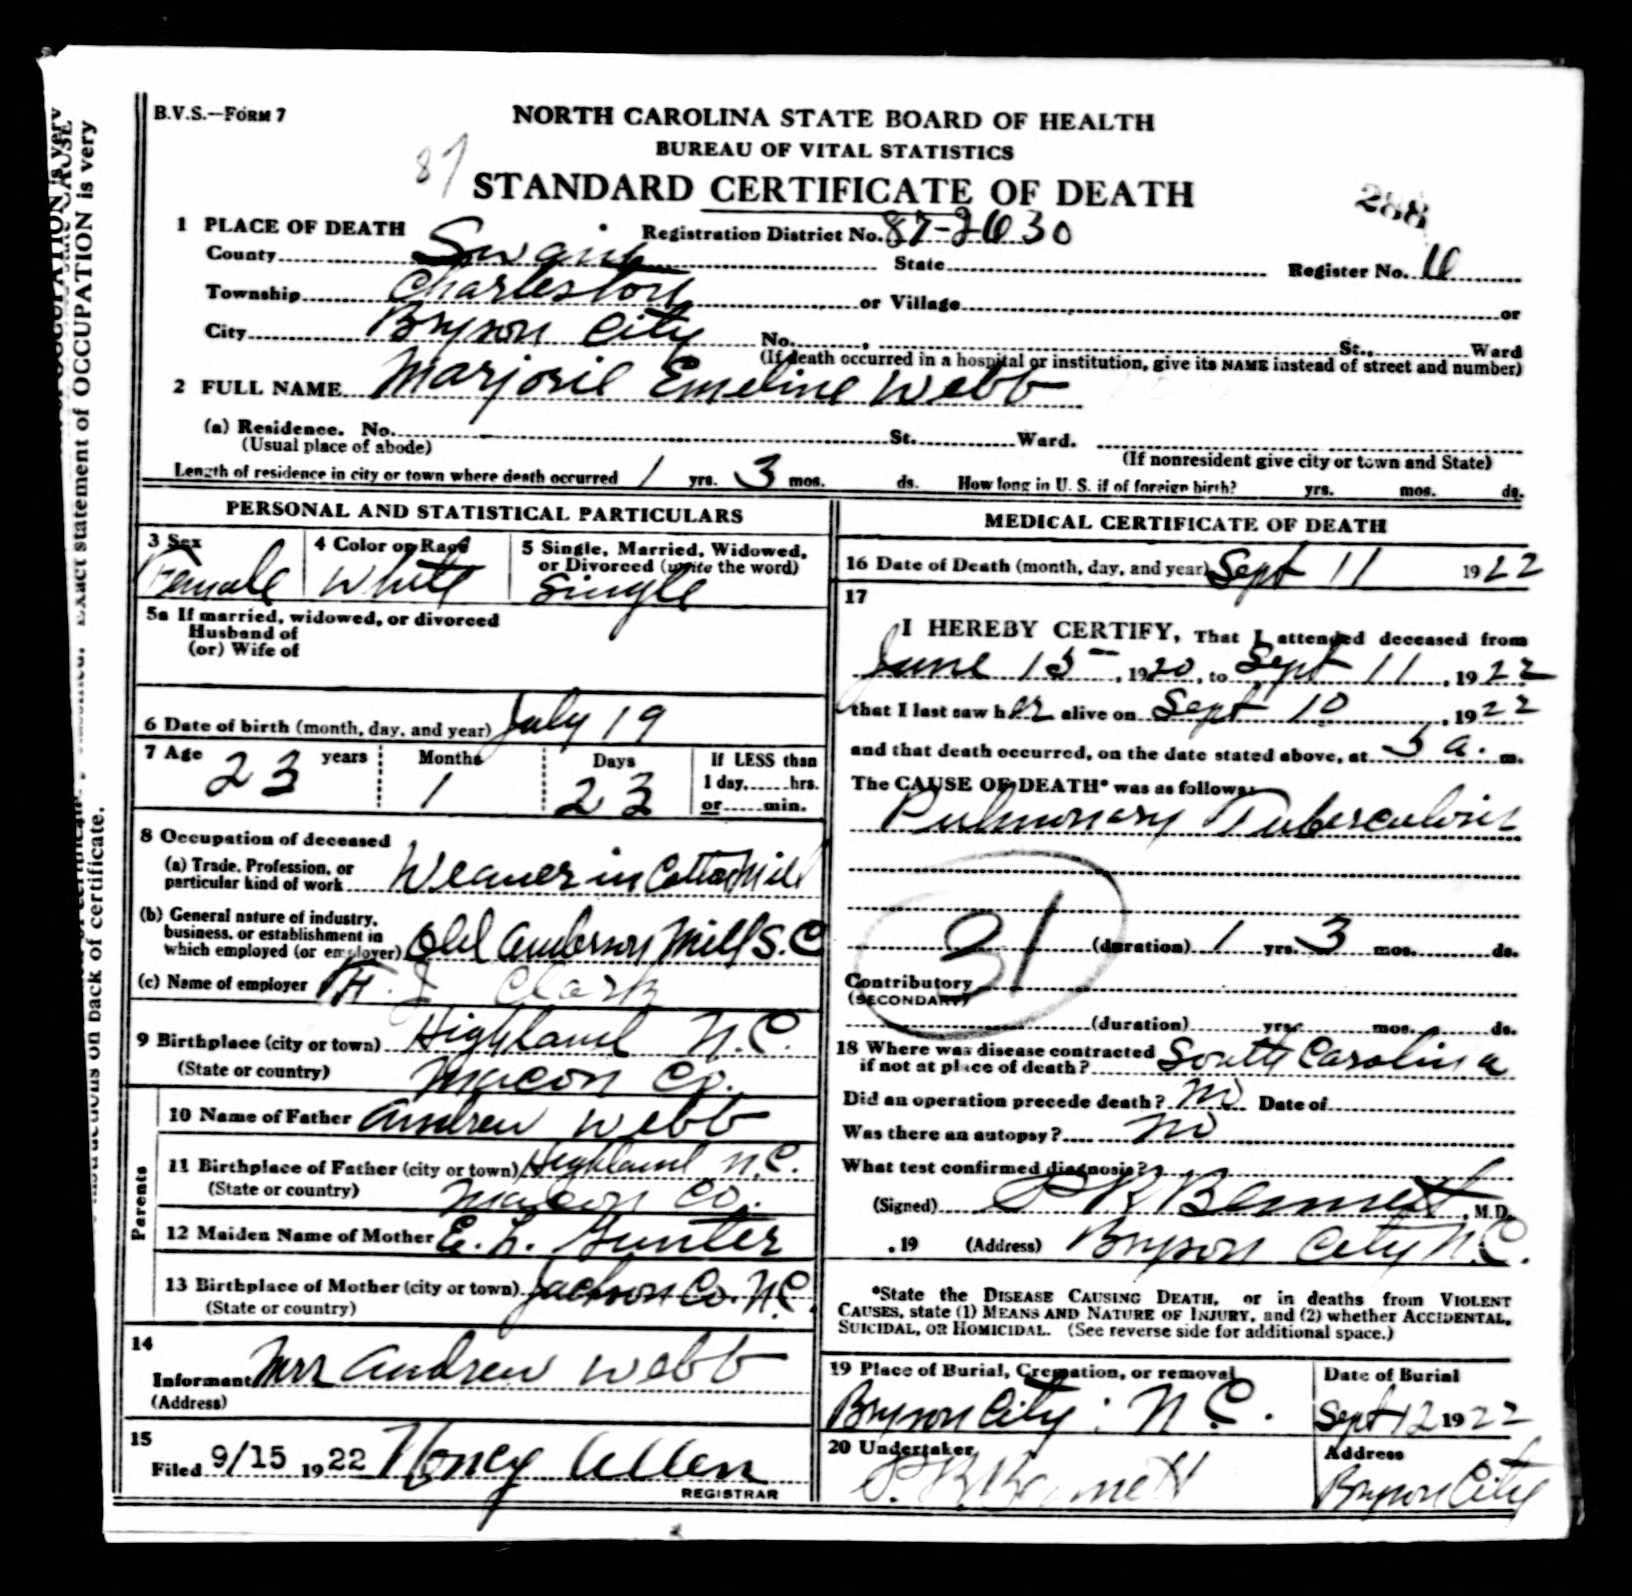 B.V.S.—FORM 7
NORTH CAROLINA STATE BOARD OF HEALTH
BUREAU OF VITAL STATISTICS
87 STANDARD CERTIFICATE OF DEATH
288
1 PLACE OF DEATH Registration District No. 87-2630
County Swain State Register No. 16
Township Charleston or Village or
City Bryson City No. , St., Ward
(If death occurred in a hospital or institution, give its NAME instead of street and number)
2 FULL NAME Marjorie Emeline Webb
(a) Residence. No. St. Ward.
(Usual place of abode) (If nonresident give city or town and State)
Length of residence in city or town where death occurred 1 yrs. 3 mos. ds. How long in U. S. if of foreign birth? yrs. mos. ds.
PERSONAL AND STATISTICAL PARTICULARS
3 Sex 4 Color or Race 5 Single, Married, Widowed,
or Divorced (write the word)
Female White Single
5a If married, widowed, or divorced
Husband of
(or) Wife of
6 Date of birth (month, day, and year) July 19
7 Age 23 years 1 Months 23 Days If LESS than
1 day, hrs.
or min.
8 Occupation of deceased
(a) Trade, Profession, or
particular kind of work Weaver in Cotton Mill
(b) General nature of industry,
business, or establishment in
which employed (or employer) Old Anderson Mill S.C
(c) Name of employer J Clark
9 Birthplace (city or town) Highland N.C.
(State or country) Macon Co.
Parents
10 Name of Father Andrew Webb
11 Birthplace of Father (city or town) Highland N.C.
(State or country) Macon Co.
12 Maiden Name of Mother E. L. Gunter
13 Birthplace of Mother (city or town) Jackson Co. N.C.
(State or country)
14
Informant Mrs Andrew Webb
(Address)
15
Filed 9/15 1922 Allen
REGISTRAR
MEDICAL CERTIFICATE OF DEATH
16 Date of Death (month, day, and year) Sept 11 1922
17
I HEREBY CERTIFY, That I attended deceased from
June 15, 1920, to Sept 11, 1922
that I last saw her alive on Sept 10, 1922
and that death occurred, on the date stated above, at 5 a. m.
The CAUSE OF DEATH* was as follows:
Pulmonary Tuberculosis
31
(duration) 1 yrs. 3 mos. ds.
Contributory
(SECONDARY)
(duration) yrs. mos. ds.
18 Where was disease contracted
if not at place of death? South Carolina
Did an operation precede death? no Date of
Was there an autopsy? no
What test confirmed diagnosis?
(Signed) P R Bennett, M.D.
, 19 (Address) Bryson City N.C.
*State the DISEASE CAUSING DEATH, or in deaths from VIOLENT
CAUSES, state (1) MEANS AND NATURE OF INJURY, and (2) whether ACCIDENTAL,
SUICIDAL, OR HOMICIDAL. (See reverse side for additional space.)
19 Place of Burial, Cremation, or removal Date of Burial
Bryson City, N.C. Sept 12 1922
20 Undertaker Address
P. R. Bennett Bryson City
Exact statement of OCCUPATION is very
instructions on back of certificate.